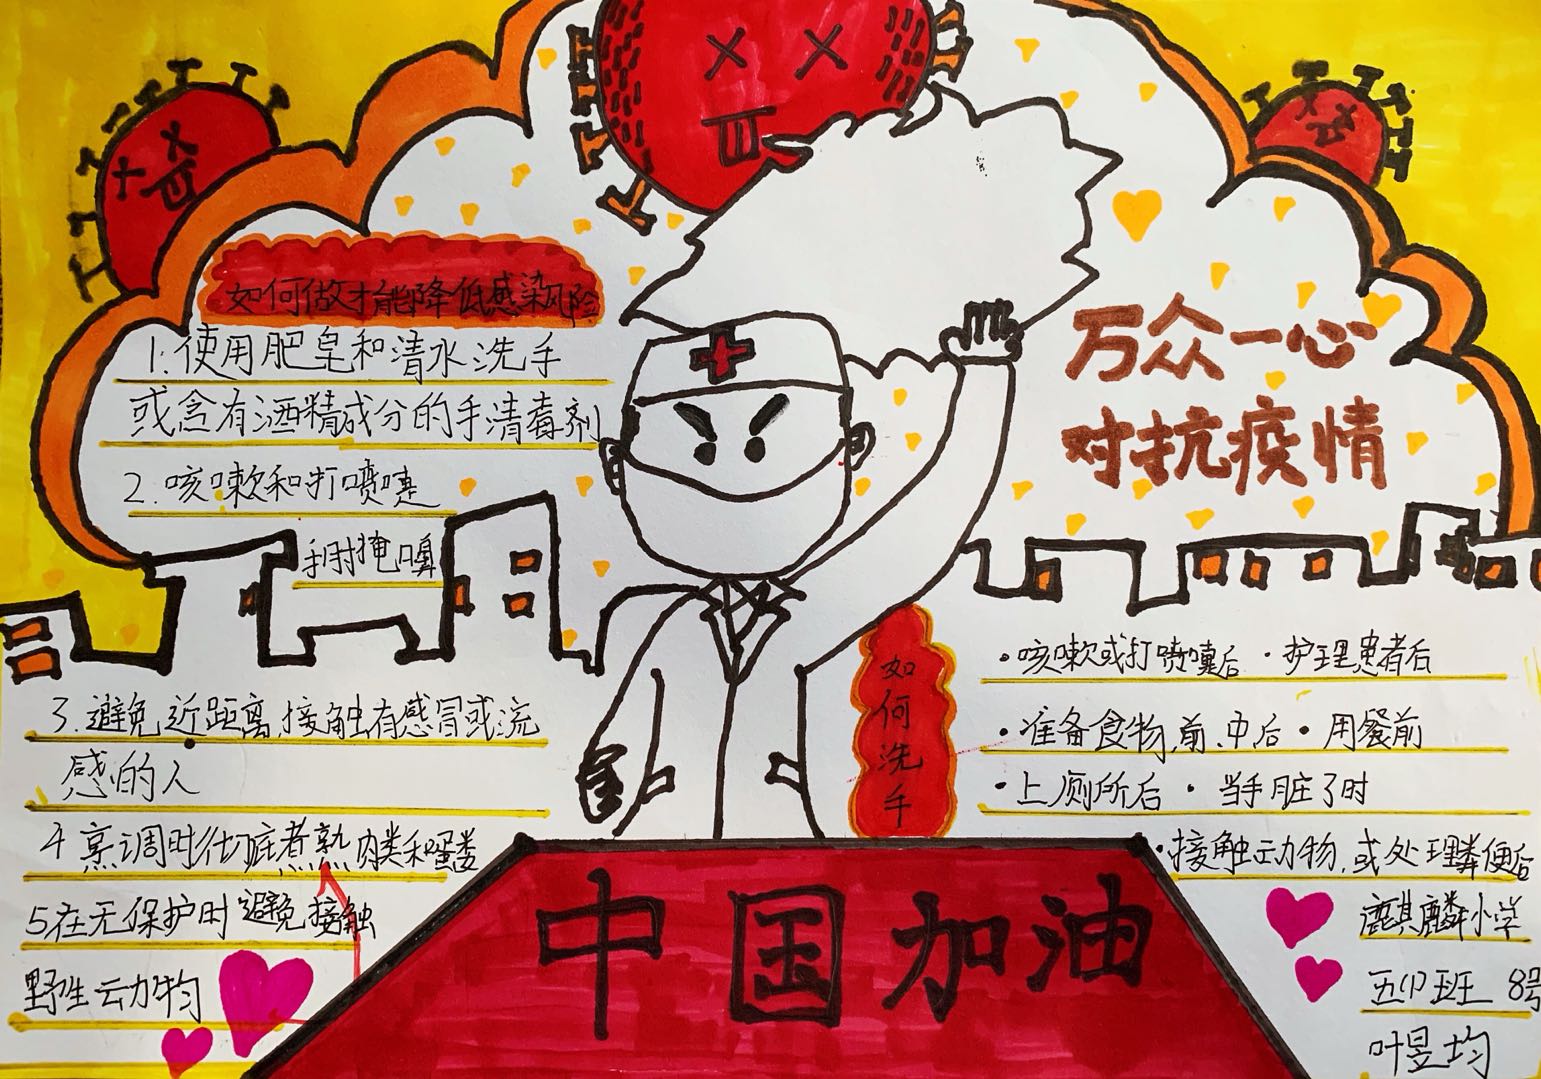 如何做才能降低感染风险
1.使用肥皂和清水洗手
或含有酒精成分的手清毒剂
2.咳嗽和打喷嚏
手肘掩口鼻
3.避免近距离接触有感冒或流
感的人
4烹调时彻底煮熟肉类和蛋类
5在无保护时避免接触
野生动物
万众一心
对抗疫情
如何洗手
·咳嗽或打喷嚏后·护理患者后
·准备食物前、中后·用餐前
·上厕所后·当手脏了时
·接触动物,或处理粪便后
中国加油
麒麟小学
五(1)班 8号
叶昱均